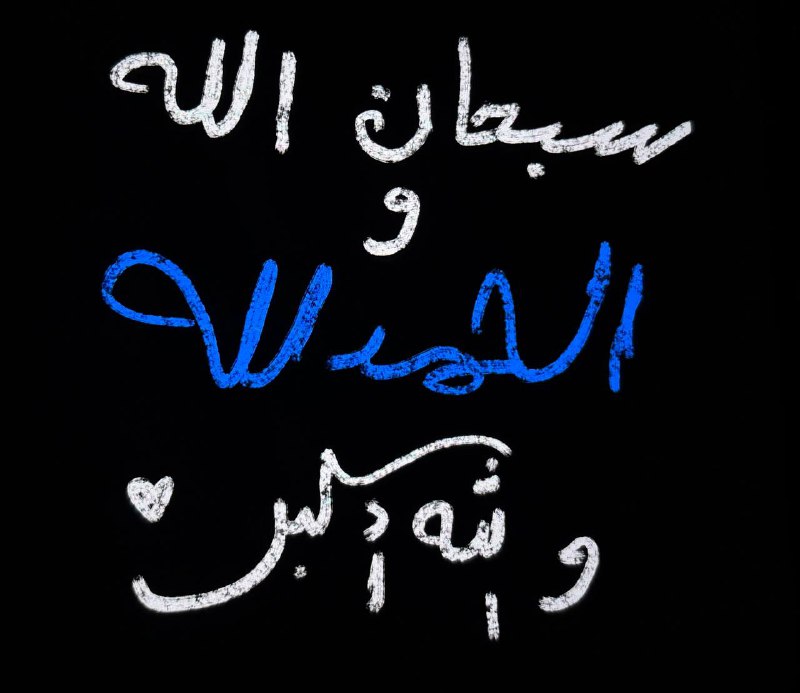 سبحان الله
و
الحمد لله
و الله أكبر